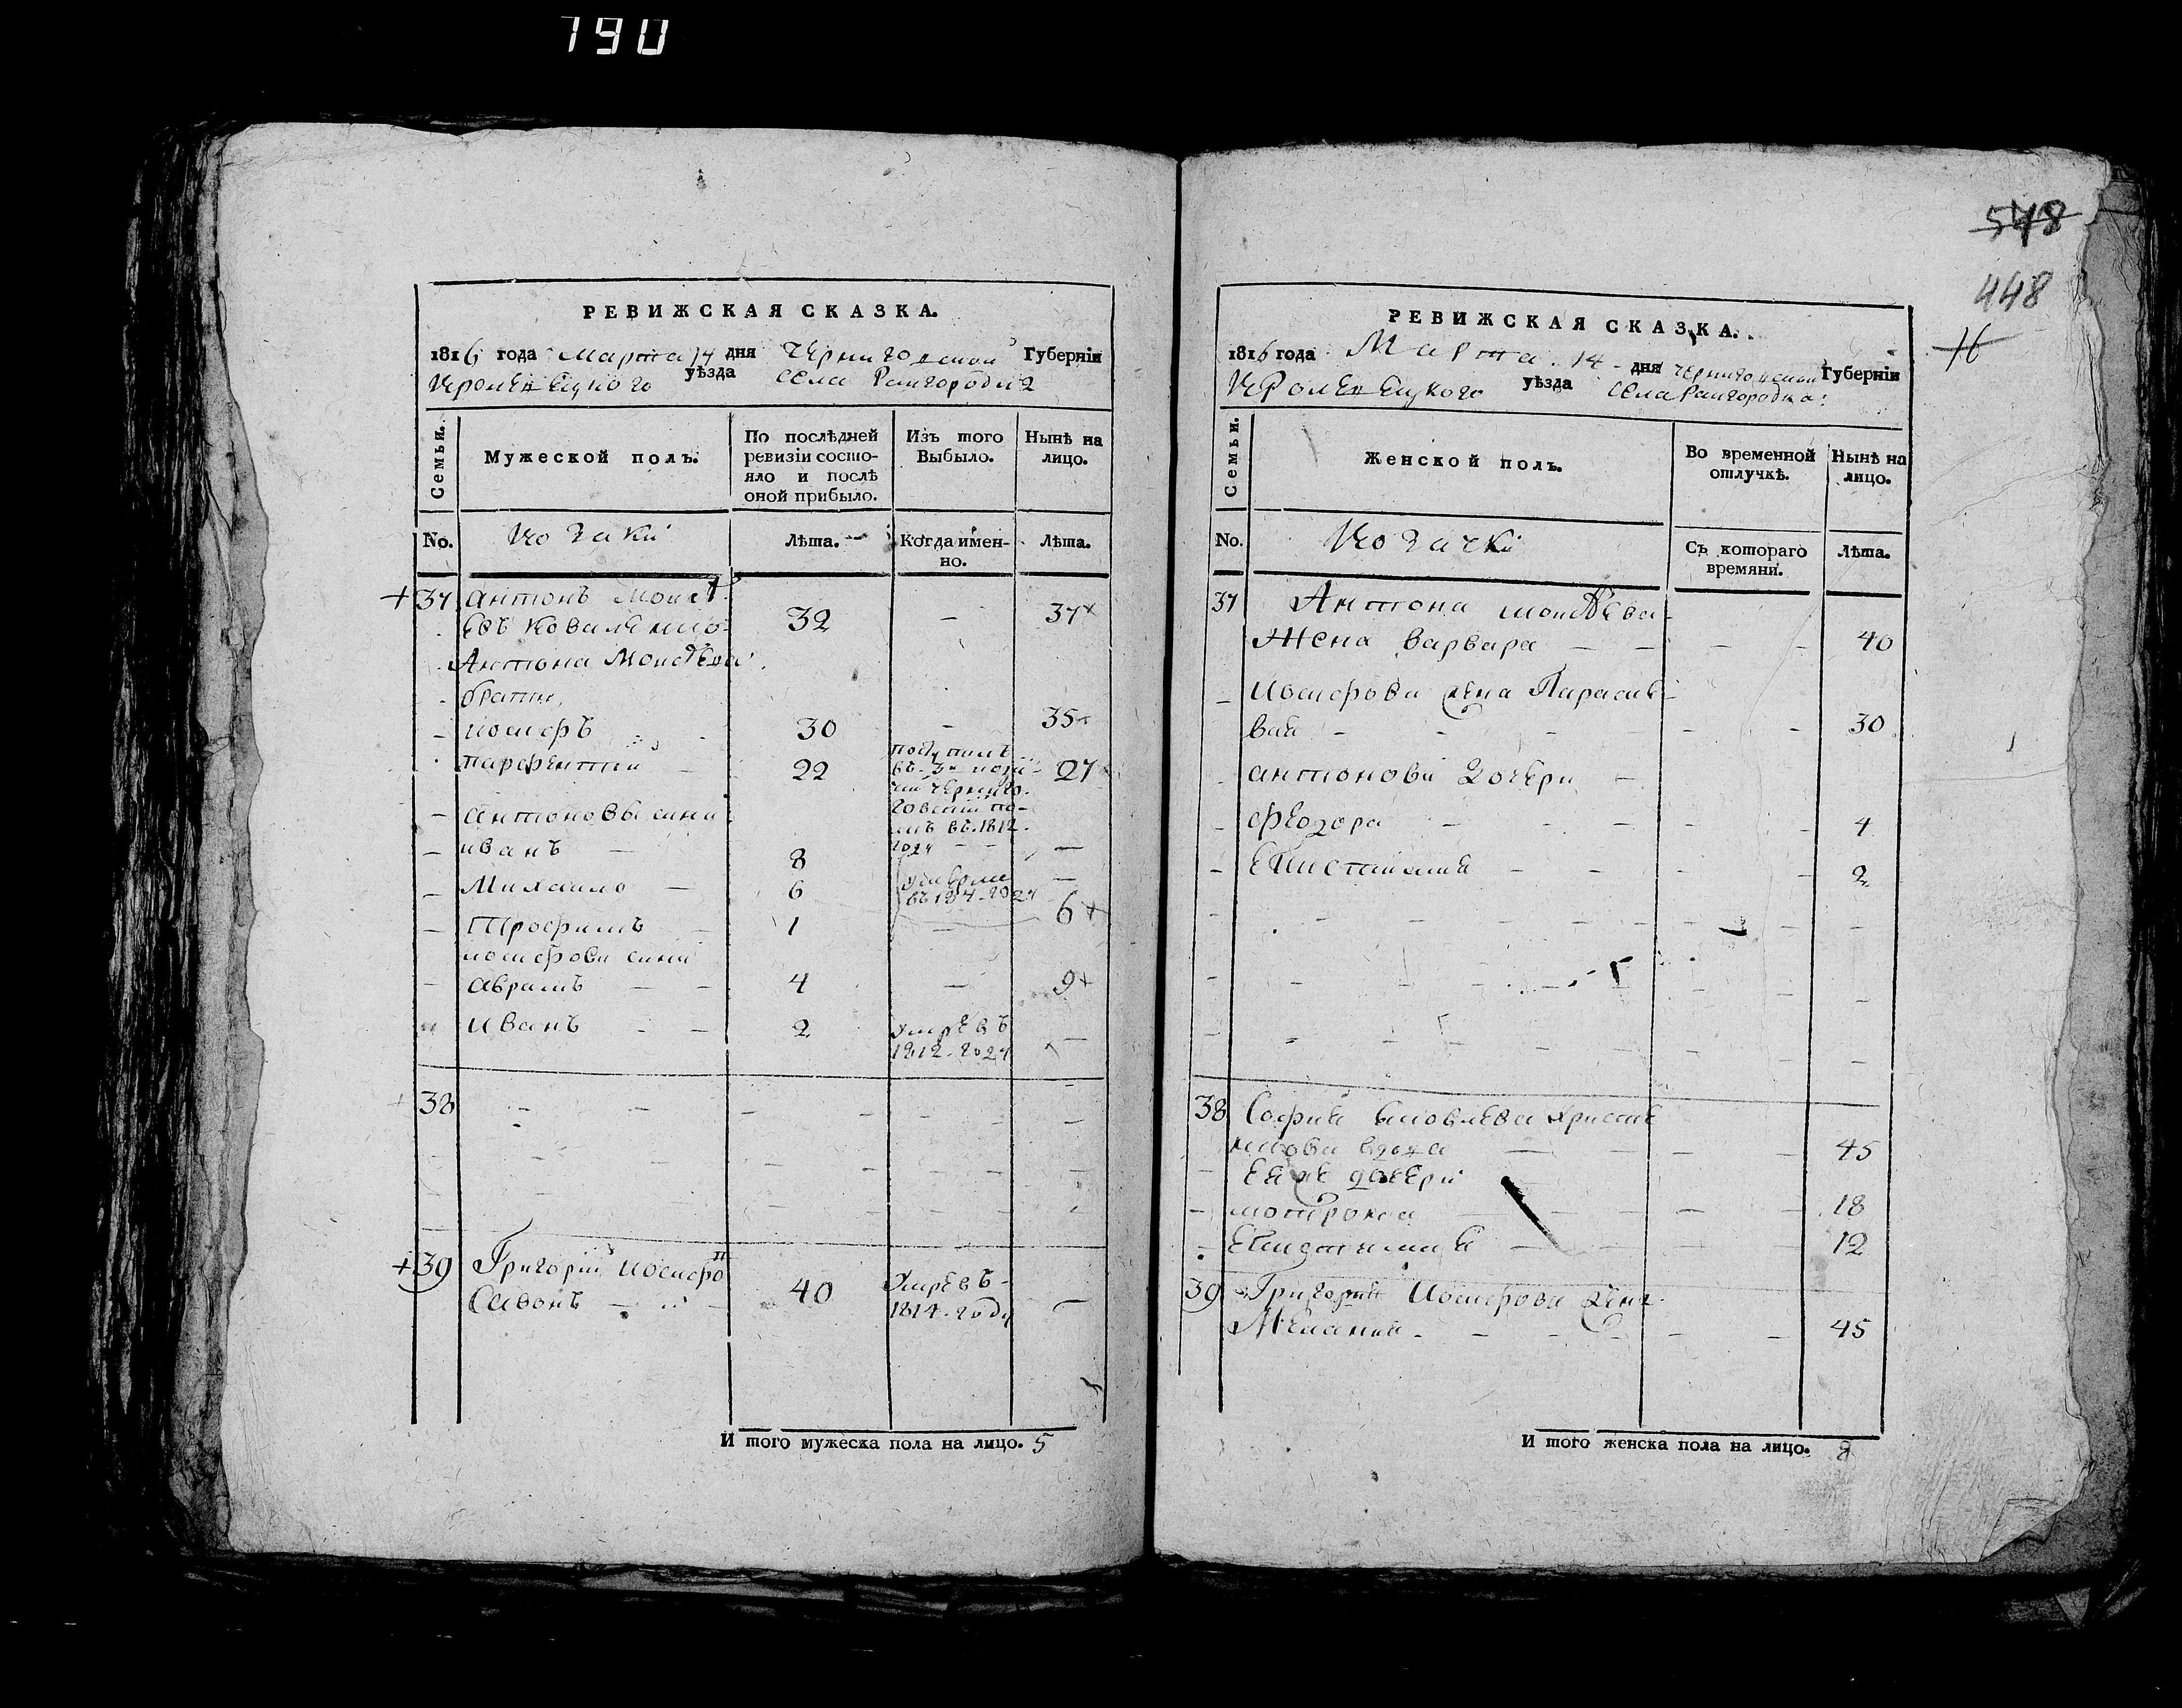 190
РЕВИЖСКАЯ СКАЗКА.
1816 года Марта 14 дня Черниговской Губерніи
Кролевецкого уѣзда Села Райгородка
Семьи.
Мужеской полъ.
По послѣдней ревизіи состояло и послѣ оной прибыло.
Изъ того Выбыло.
Нынѣ на лицо.
No. Козаки Лѣта. Когда именно. Лѣта.
37 Антонъ Моисѣ
евъ Ковале 32 — 37
Антона Моисѣева
братья
иосифъ 30 — 35
парфентии 22 поступилъ въ 3й 27
въ 1812.
году
антоновы сини
иванъ — 8 —
Михаило — 6 умерли —
Трофимъ — 1 — 6
иосифови сини
аврамъ — 4 — 9
иванъ — 2 умрѣвъ —
1812 году
38
39 Григорій Иосифо
Савонъ — 40 Умрѣвъ —
1814 году
И того мужеска пола на лицо. 5
578
448
РЕВИЖСКАЯ СКАЗКА.
1816 года Марта 14 дня Черниговской Губерніи
Кролевецкого уѣзда Села Райгородка
Семьи.
Женской полъ.
Во временной отлучкѣ.
Нынѣ на лицо.
No. Козачки Съ котораго времяни. Лѣта.
37 Антона моисѣева
Жена Варвара — 40
Иосифови жена Параске
вия — 30
антонови дочери —
феодора — 4
Епистимия — 2
38 София яковлева
вдова — 45
Ея же дочери
мотрона — 18
Епистимия — 12
39 Григория Иосифова жена
Мелания — 45
И того женска пола на лицо. 8